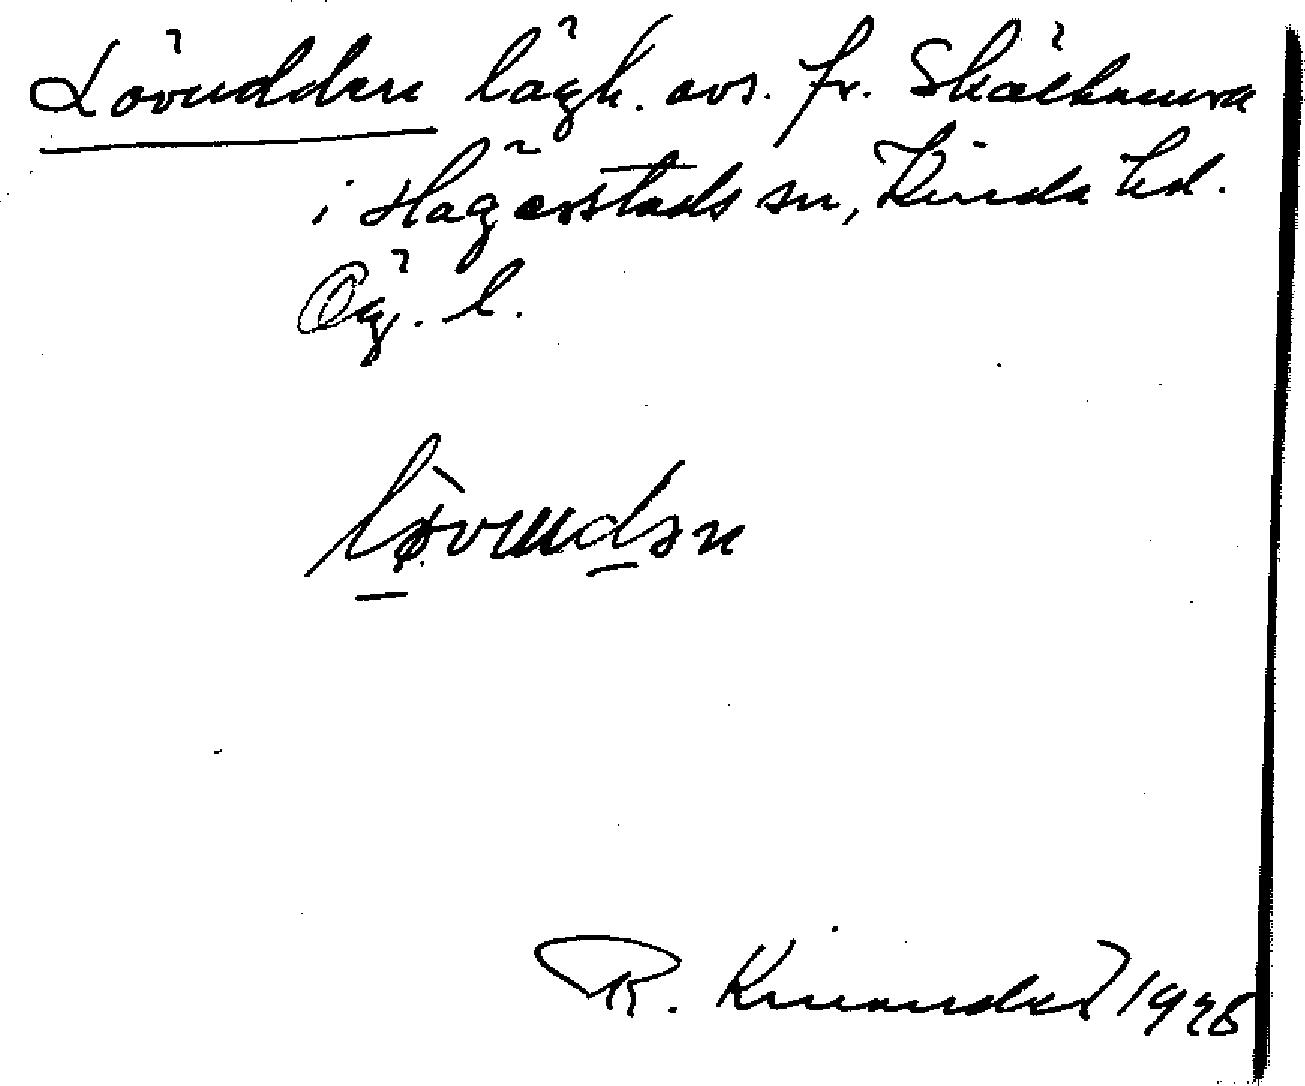 Lövudden lägh. avs. fr. Skälhemma
i Hägerstads sn, Kinda hd.
Ög. l.
lövudən
R. Kinander 1926